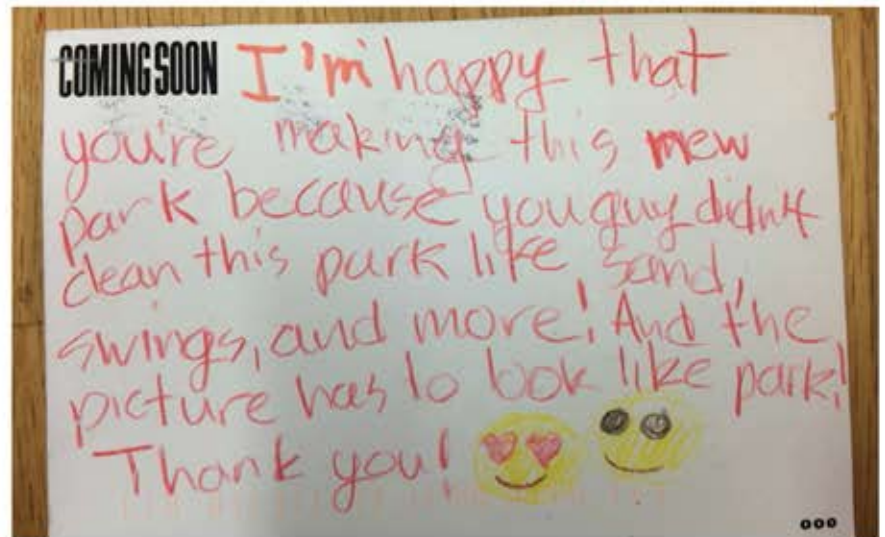 COMING SOON I'm happy that
you're making this mew
park because you guy didn't
clean this park like sand,
swings, and more! And the
picture has to look like park!
Thank you!